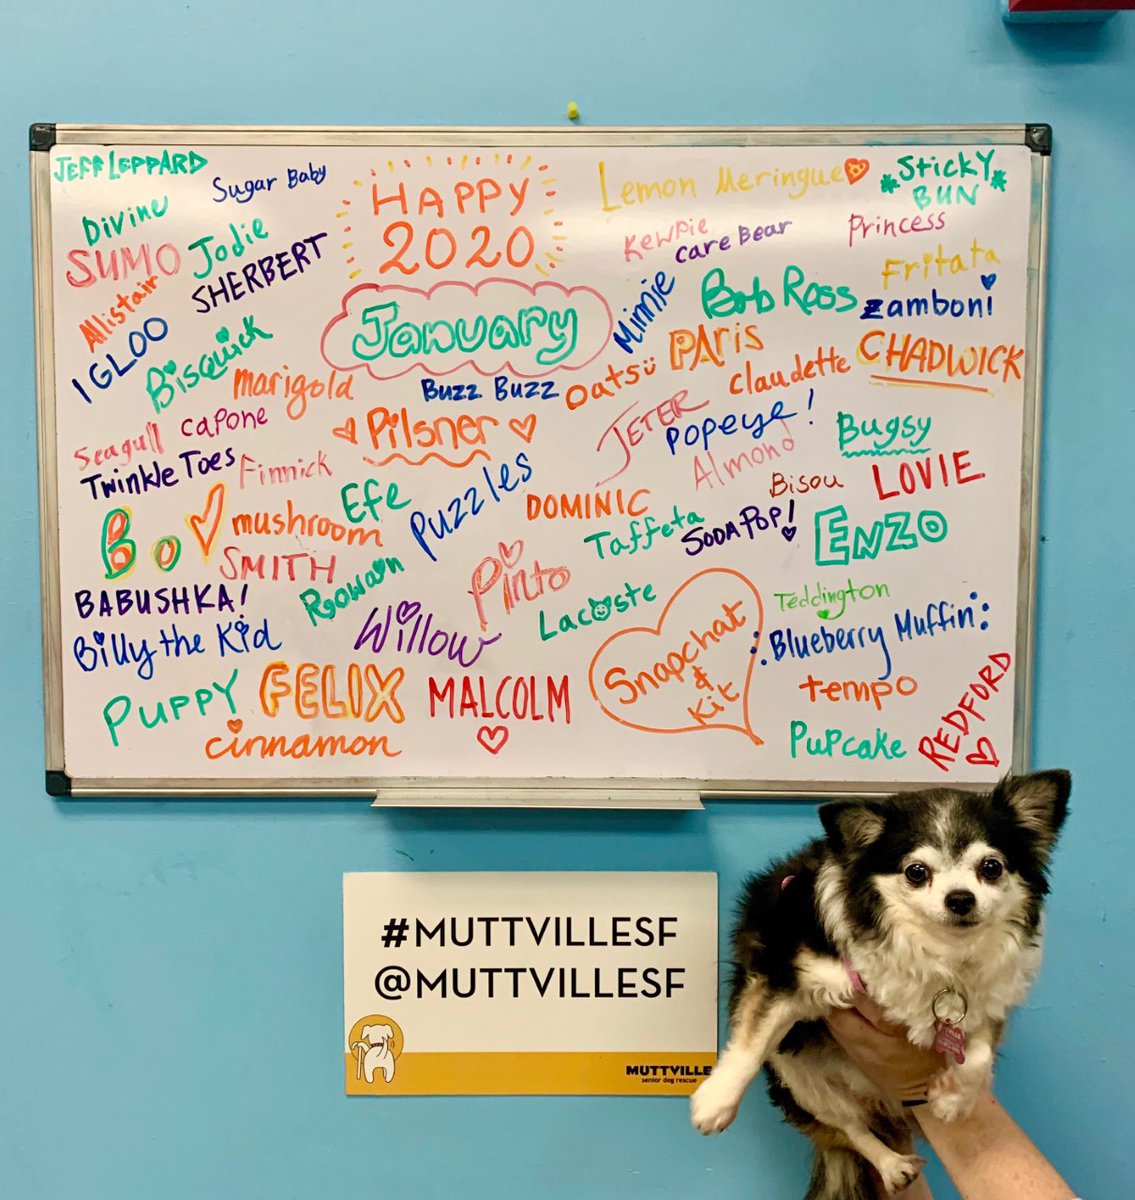 JEFF LEPPARD
Sugar Baby
HAPPY
2020
Lemon Meringue
*STICKY
BUN*
Divine
Jodie
SUMO
SHERBERT
Kewpie
Care Bear
Princess
Allistair
Fritata
IGLOO
Bisquick
January
Minnie
Bob Ross
Zamboni
marigold
Buzz Buzz
Oatsü
PARis
Claudette
CHADWICK
Seagull
capone
Pilsner
JETER
Popeye!
Bugsy
Twinkle Toes
Finnick
Almond
Bisou
LOVIE
Bo
mushroom
Efe
Puzzles
DOMINIC
Taffeta
SODA POP!
ENZO
SMITH
Rowan
Pinto
Lacoste
Teddington
BABUSHKA!
Willow
Snapchat
&
Kit
Blueberry Muffin
Billy the Kid
PUPPY
FELIX
MALCOLM
tempo
REDFORD
cinnamon
Pupcake
#MUTTVILLESF
@MUTTVILLESF
MUTTVILLE
senior dog rescue